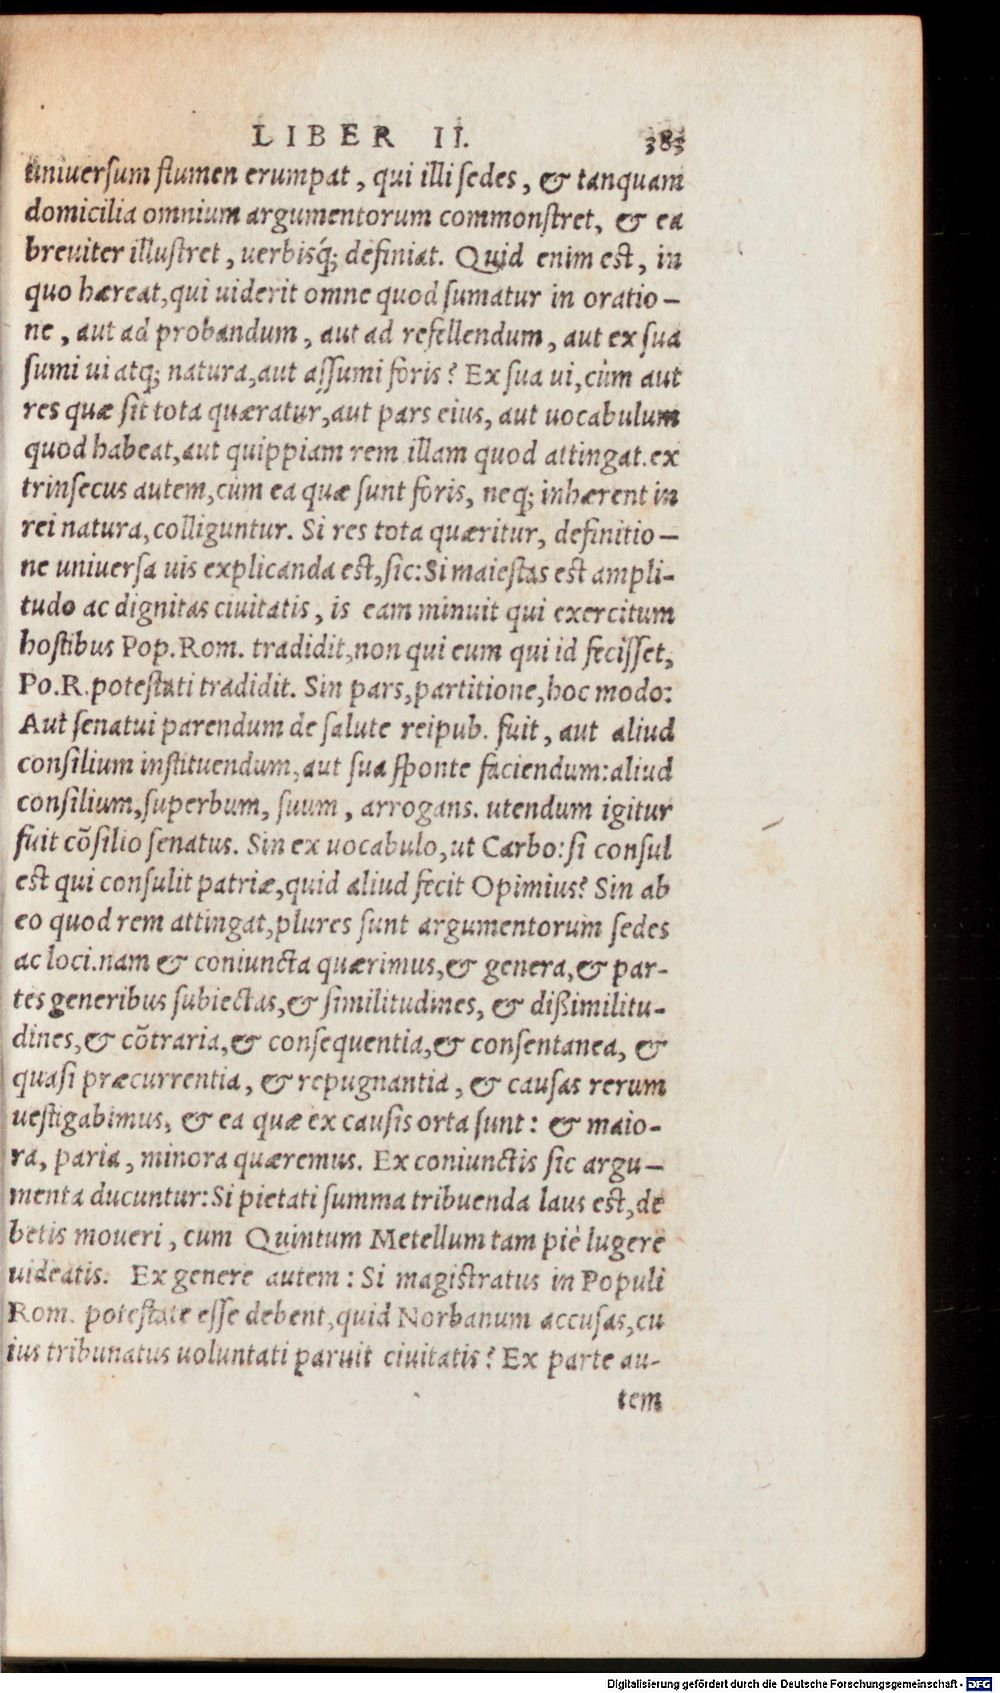 LIBER II. 383
uniuersum flumen erumpat, qui illi sedes, & tanquam
domicilia omnium argumentorum commonstret, & ea
breuiter illustret, uerbisq́; definiat. Quid enim est, in
quo hæreat, qui uiderit omne quod sumatur in oratio-
ne, aut ad probandum, aut ad refellendum, aut ex sua
sumi ui atq; natura, aut assumi foris? Ex sua ui, cùm aut
res quæ sit tota quæratur, aut pars eius, aut uocabulum
quod habeat, aut quippiam rem illam quod attingat. ex
trinsecus autem, cùm ea quæ sunt foris, neq; inhærent in
rei natura, colliguntur. Si res tota quæritur, definitio-
ne uniuersa uis explicanda est, sic: Si maiestas est ampli-
tudo ac dignitas ciuitatis, is eam minuit qui exercitum
hostibus Pop. Rom. tradidit, non qui eum qui id fecisset,
Po. R. potestati tradidit. Sin pars, partitione, hoc modo:
Aut senatui parendum de salute reipub. fuit, aut aliud
consilium instituendum, aut sua sponte faciendum: aliud
consilium, superbum, suum, arrogans. utendum igitur
fuit cõsilio senatus. Sin ex uocabulo, ut Carbo: si consul
est qui consulit patriæ, quid aliud fecit Opimius? Sin ab
eo quod rem attingat, plures sunt argumentorum sedes
ac loci. nam & coniuncta quærimus, & genera, & par-
tes generibus subiectas, & similitudines, & dißimilitu-
dines, & cõtraria, & consequentia, & consentanea, &
quasi præcurrentia, & repugnantia, & causas rerum
uestigabimus, & ea quæ ex causis orta sunt: & maio-
ra, paria, minora quæremus. Ex coniunctis sic argu-
menta ducuntur: Si pietati summa tribuenda laus est, de
betis moueri, cum Quintum Metellum tam piè lugere
uideatis. Ex genere autem: Si magistratus in Populi
Rom. potestate esse debent, quid Norbanum accusas, cu
ius tribunatus uoluntati paruit ciuitatis? Ex parte au-
tem
Digitalisierung gefördert durch die Deutsche Forschungsgemeinschaft - DFG